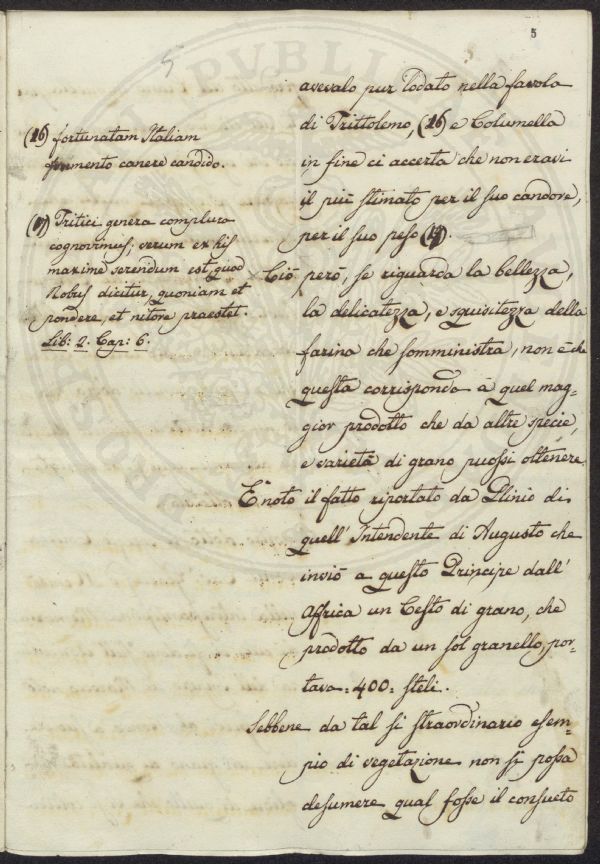 5
5
avevalo pur lodato nella favola
di Trittolemo, (16) e Columella
in fine ci accerta che non eravi
il più stimato per il suo candore,
per il suo peso (17).
Ciò però, se riguarda la bellezza,
la delicatezza, e squisitezza della
farina che somministra, non è che
questa corrisponda à quel mag=
gior prodotto che da altre specie,
e varietà di grano puossi ottenere.
È noto il fatto riportato da Plinio di
quell' Intendente di Augusto che
inviò a questo Principe dall'
Affrica un Cesto di grano, che
prodotto da un sol granello, por=
tava = 400 = steli.
Sebbene da tal sì straordinario esem=
pio di vegetazione non si possa
desumere qual fosse il consueto
(16) fortunatam Italiam
frumento canere candido.
(17) Tritici genera complura
cognovimus; verum ex his
maxime serendum est, quod
Robus dicitur, quoniam et
pondere, et nitore praestet.
Lib: 2. Cap: 6.
PUBLI